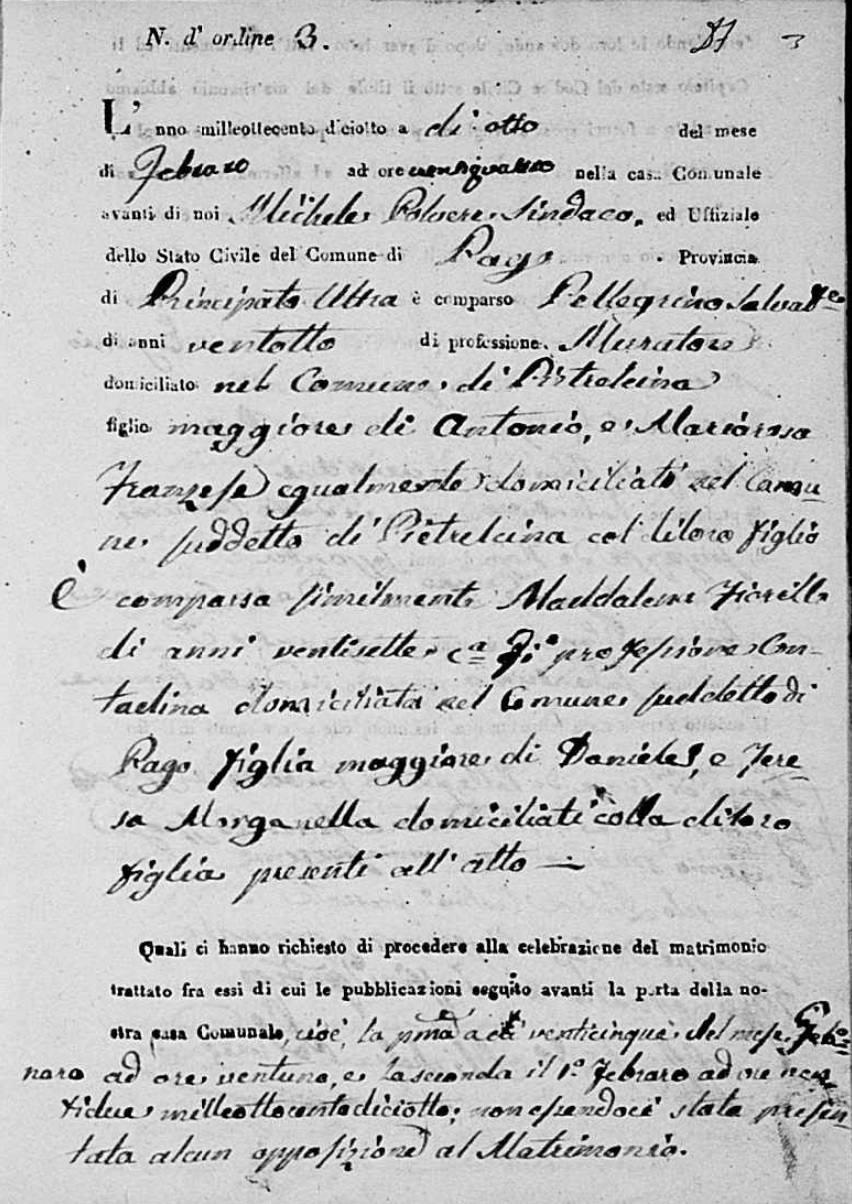 N. d' ordine 3. 3
L' nno milleottecento diciotto a di otto del mese
di Febraro ad ore ventiquattro nella casa Comunale
avanti di noi Michele Polvere Sindaco, ed Uffiziale
dello Stato Civile del Comune di Pago . Provincia
di Principato Ultra è comparso Pellegrino
di anni ventotto di professione Muratore
domiciliato nel Comune di Pietrelcina
figlio maggiore di Antonio, e Mariarosa
Franzese egualmente domiciliati nel Comu
ne suddetto di Pietrelcina col diloro figlio
È comparsa similmente Maddalena Fiorilla
di anni ventisette ca di professione Con-
tadina domiciliata nel Comune suddetto di
Pago figlia maggiore di Daniele, e Tere
sa Morganella domiciliati colla diloro
figlia presenti all' atto —
Quali ci hanno richiesto di procedere alla celebrazione del matrimonio
trattato fra essi di cui le pubblicazioni seguito avanti la porta della no-
stra casa Comunale, cioè, la pma a dì venticinque del mese
naro ad ore ventuno, e la seconda il 1º Febraro ad ore ven
tidue milleottocentodiciotto; non essendoci stata presen
tata alcun opposizione al Matrimonio.